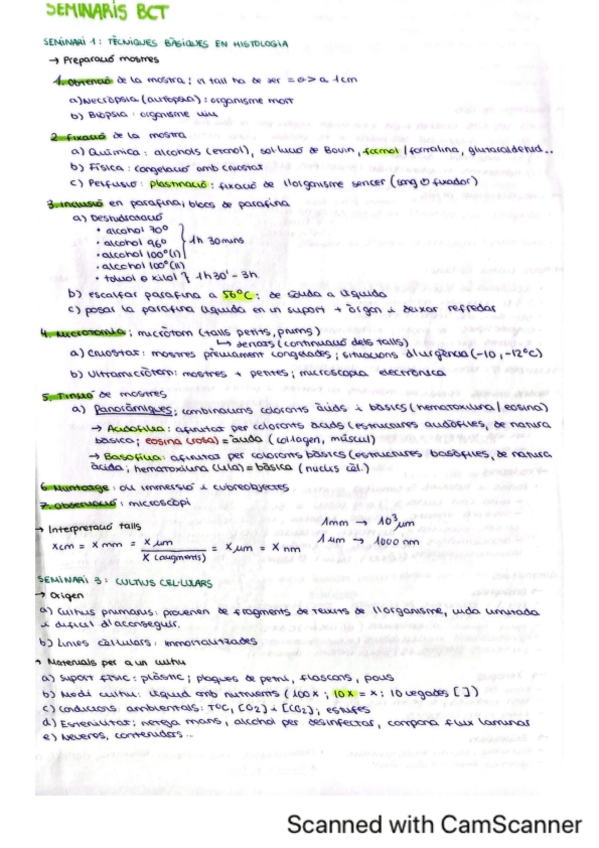 SEMINARIS BCT
SEMINARI 1: TÈCNIQUES BÀSIQUES EN HISTOLOGIA
→ Preparació mostres
1. Obtenció de la mostra; el tall ha de ser = o > a 1cm
a) Necròpsia (autòpsia): organisme mort
b) Biòpsia: organisme viu
2. Fixació de la mostra
a) Química: alcohols (etanol), solució de Bouin, formol / formalina, glutaraldehid...
b) Física: congelació amb criostat
c) Perfusió: plastinació: fixació de l'organisme sencer (sang fixador)
3. Inclusió en parafina; blocs de parafina
a) Deshidratació
• alcohol 70º
• alcohol 96º
• alcohol 100º (I)
• alcohol 100º (II)
} 1h 30 mins
• toluol o xilol } 1h30' - 3h
b) escalfar parafina a 56ºC: de sòlida a líquida
c) posar la parafina líquida en un suport + òrgan i deixar refredar
4. Microtomia; micròtom (talls petits, prims)
↳ seriats (continuació dels talls)
a) Criostat: mostres prèviament congelades; situacions d'urgència (-10, -12ºC)
b) Ultramicròtom: mostres + petites; microscòpia electrònica
5. Tinció de mostres
a) Panoràmiques; combinacions colorants àcids i bàsics (hematoxilina / eosina)
→ Acidofília: afinitat per colorants àcids (estructures acidòfiles, de natura
bàsica; eosina (rosa) = àcida (collagen, múscul)
→ Basofília: afinitat per colorants bàsics (estructures basòfiles, de natura
àcida; hematoxilina (lila) = bàsica (nuclis cèl.)
6. Muntatge: oli immersió i cubreobjectes
7. Observació: microscopi
→ Interpretació talls
x cm = x mm = x µm / x (augments) = x µm = x nm
1mm → 10³ µm
1 µm → 1000 nm
SEMINARI 3: CULTIUS CEL·LULARS
→ Origen
a) Cultius primaris: provenen de fragments de teixits de l'organisme, vida limitada
i difícil d'aconseguir.
b) Línies cel·lulars: immortalitzades
→ Materials per a un cultiu
a) Suport físic: plàstic; plaques de petri, flascons, pous
b) Medi cultiu: líquid amb nutrients (100x; 10x = x; 10 vegades [ ])
c) Condicions ambientals: TºC, [O2] i [CO2]; estufes
d) Esterilitat; neteja mans, alcohol per desinfectar, campana flux laminar
e) Neveres, contenidors...
Scanned with CamScanner